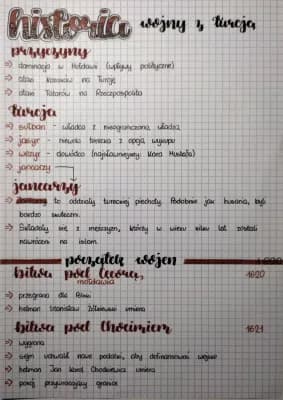 historia wojny z turcją
przyczyny
⇒ dominacja w Mołdawii (wpływy polityczne)
⇒ ataki Kozaków na Turcję
⇒ ataki Tatarów na Rzeczpospolitą
turcja
⇒ sułtan - władca z nieograniczoną władzą
⇒ jasyr - niewola turecka z opcją wykupu
⇒ wezyr - dowódca (najsławniejszy: Kara Mustafa)
⇒ janczarzy
janczarzy
⇒ to oddziały tureckiej piechoty. Podobnie jak husaria, byli
bardzo skuteczni.
⇒ Składały się z mężczyzn, którzy w wieku kilku lat zostali
nawróceni na islam.
początek wojen
bitwa pod Cecorą, 1620
mołdawia
⇒ przegrana dla Polski
⇒ hetman Stanisław Żółkiewski umiera
bitwa pod Chocimiem 1621
⇒ wygrana
⇒ sejm uchwalił nowe podatki, aby dofinansować wojsko
⇒ hetman Jan Karol Chodkiewicz umiera
⇒ pokój przywracający granice